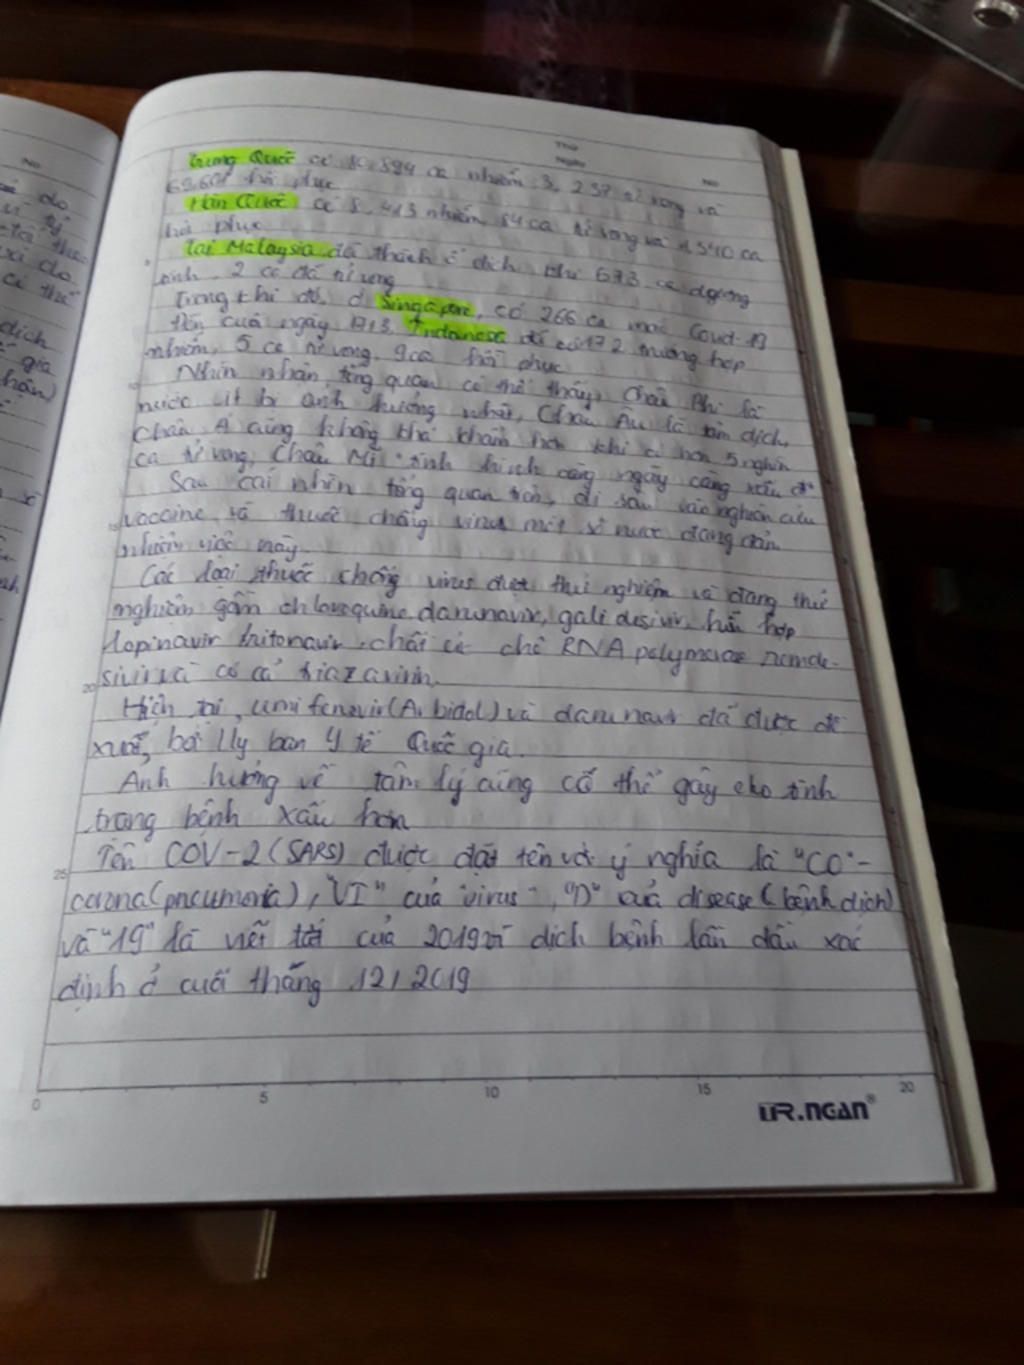 No
Thứ
Ngày
No
Trung Quốc có 80.894 ca nhiễm 3.237 tử vong và
69.601 hồi phục
Hàn Quốc có 8.413 nhiễm, 84 ca tử vong và 1.540 ca
hồi phục
Tại Malaysia đã thành ổ dịch khi 673 ca dương
tính, 2 ca đã tử vong
Trong khi đó, ở Singapore, có 266 ca mắc Covid-19
Đến cuối ngày 17/3, Indonese đã có 172 trường hợp
nhiễm, 5 ca tử vong, 9 ca hồi phục
Nhìn nhận tổng quan có thể thấy, Châu Phi là
nước ít bị ảnh hưởng nhất, Châu Âu là tâm dịch,
Châu Á cũng không khá khẩm hơn khi có hơn 5 nghìn
ca tử vong, Châu Mĩ tình hình càng ngày càng xấu đi
Sau cái nhìn tổng quan trên, đi sâu vào nghiên cứu
vaccine và thuốc chống virus một số nước đang đảm
nhiệm việc này.
Các loại thuốc chống virus được thử nghiệm và đang thử
nghiệm gồm chloroquine, darunavir, galidesivir, hỗn hợp
lopinavir/ritonavir, chất ức chế RNA polymerae remde-
sivir và có cả triazavirin.
Hiện tại, umifenovir (Arbidol) và darunavir đã được đề
xuất, bởi Ủy ban Y tế Quốc gia.
Ảnh hưởng về tâm lý cũng có thể gây cho tình
trạng bệnh xấu hơn
Tên COV-2 (SARS) được đặt tên với ý nghĩa là "CO" -
corona (pneumonia), "VI" của virus", "D" của disease (bệnh dịch)
và "19" là viết tắt của 2019 vì dịch bệnh lần đầu xác
định ở cuối tháng 12/2019
5
10
15
20
25
0 5 10 15 20
TR.NGAN®